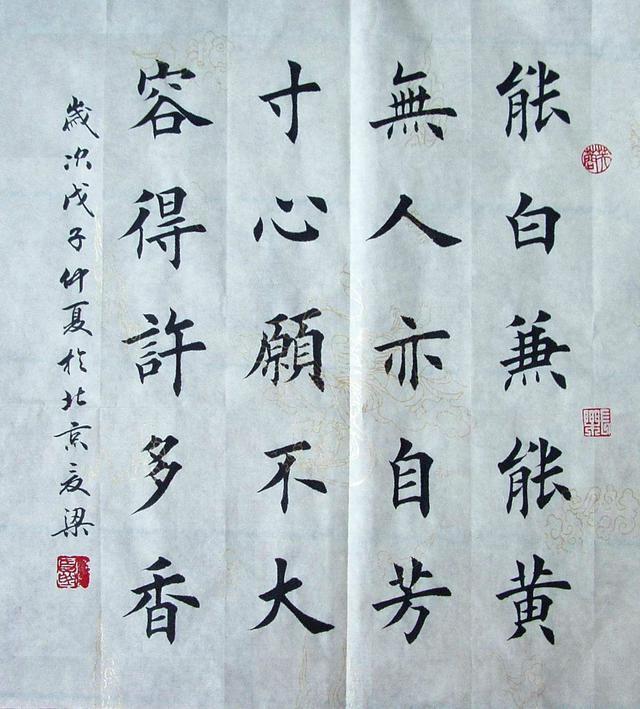 能白兼能黃
無人亦自芳
寸心願不大
容得許多香
歲次戊子仲夏於北京
梁